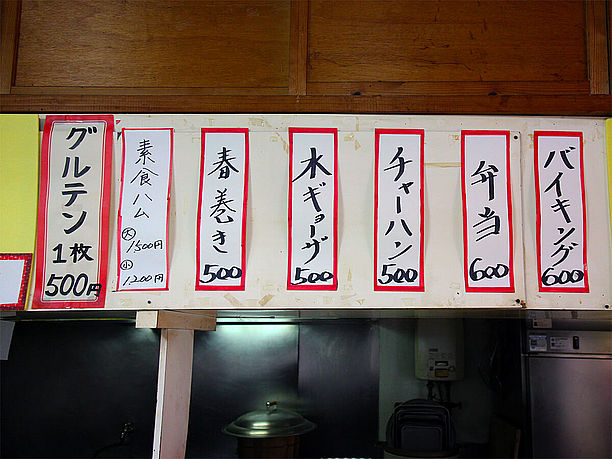 グルテン
1枚
500円
素食ハム
大
1500円
小
1200円
春巻き
500
水ギョーザ
500
チャーハン
500
弁当
600
バイキング
600